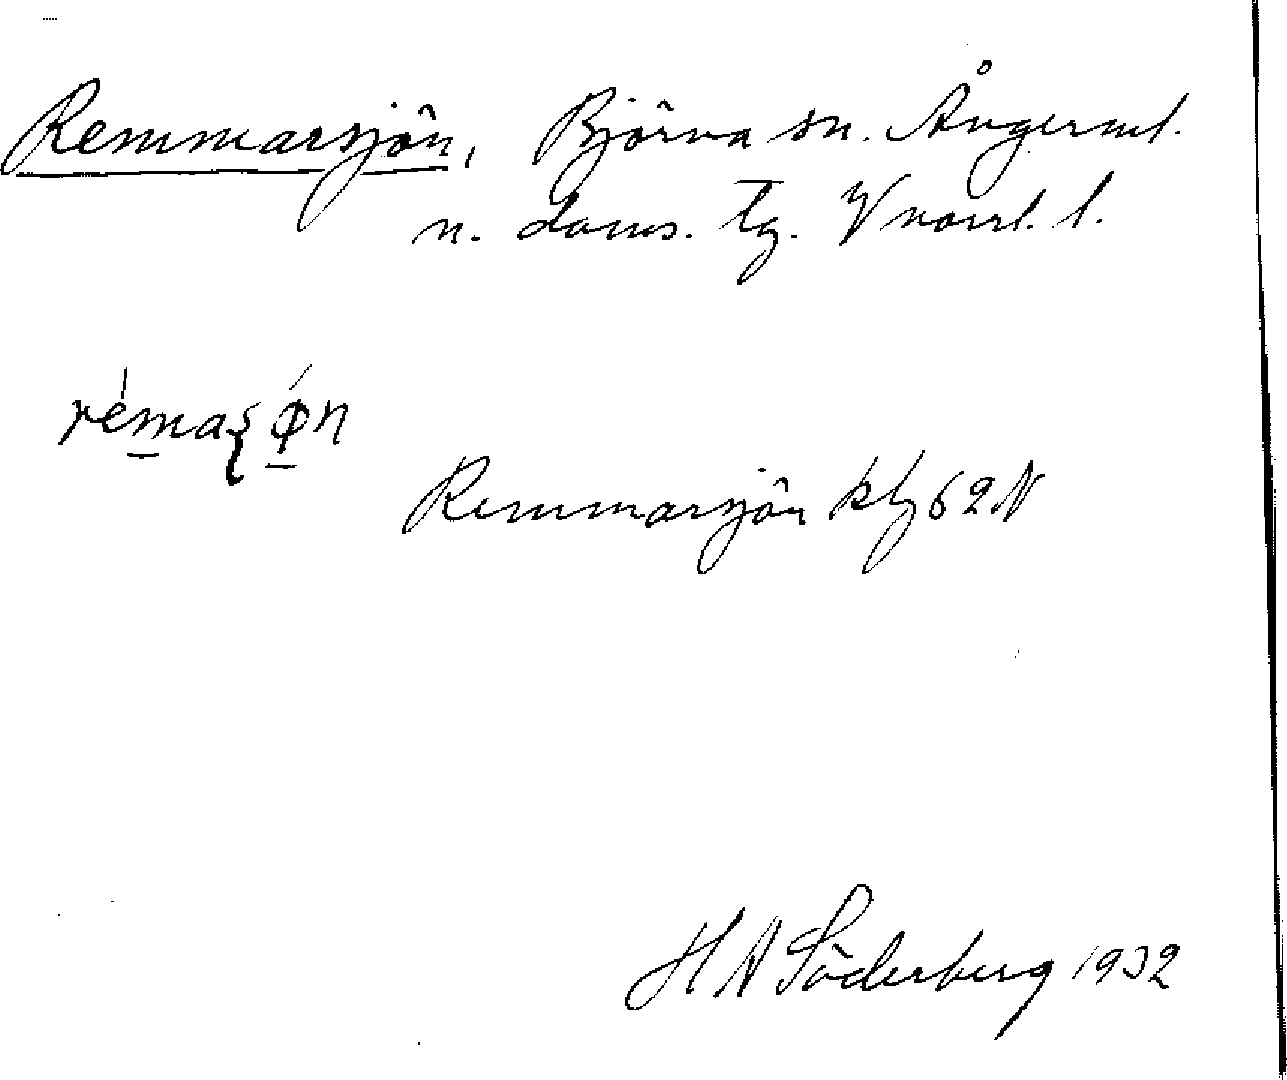 Remmarsjön, Björna sn. Ångerml.
n. doms. tg. V norrl. l.
rémaʂ ǿ̲n
Remmarsjön kbl 62 N
H A Söderberg 1932